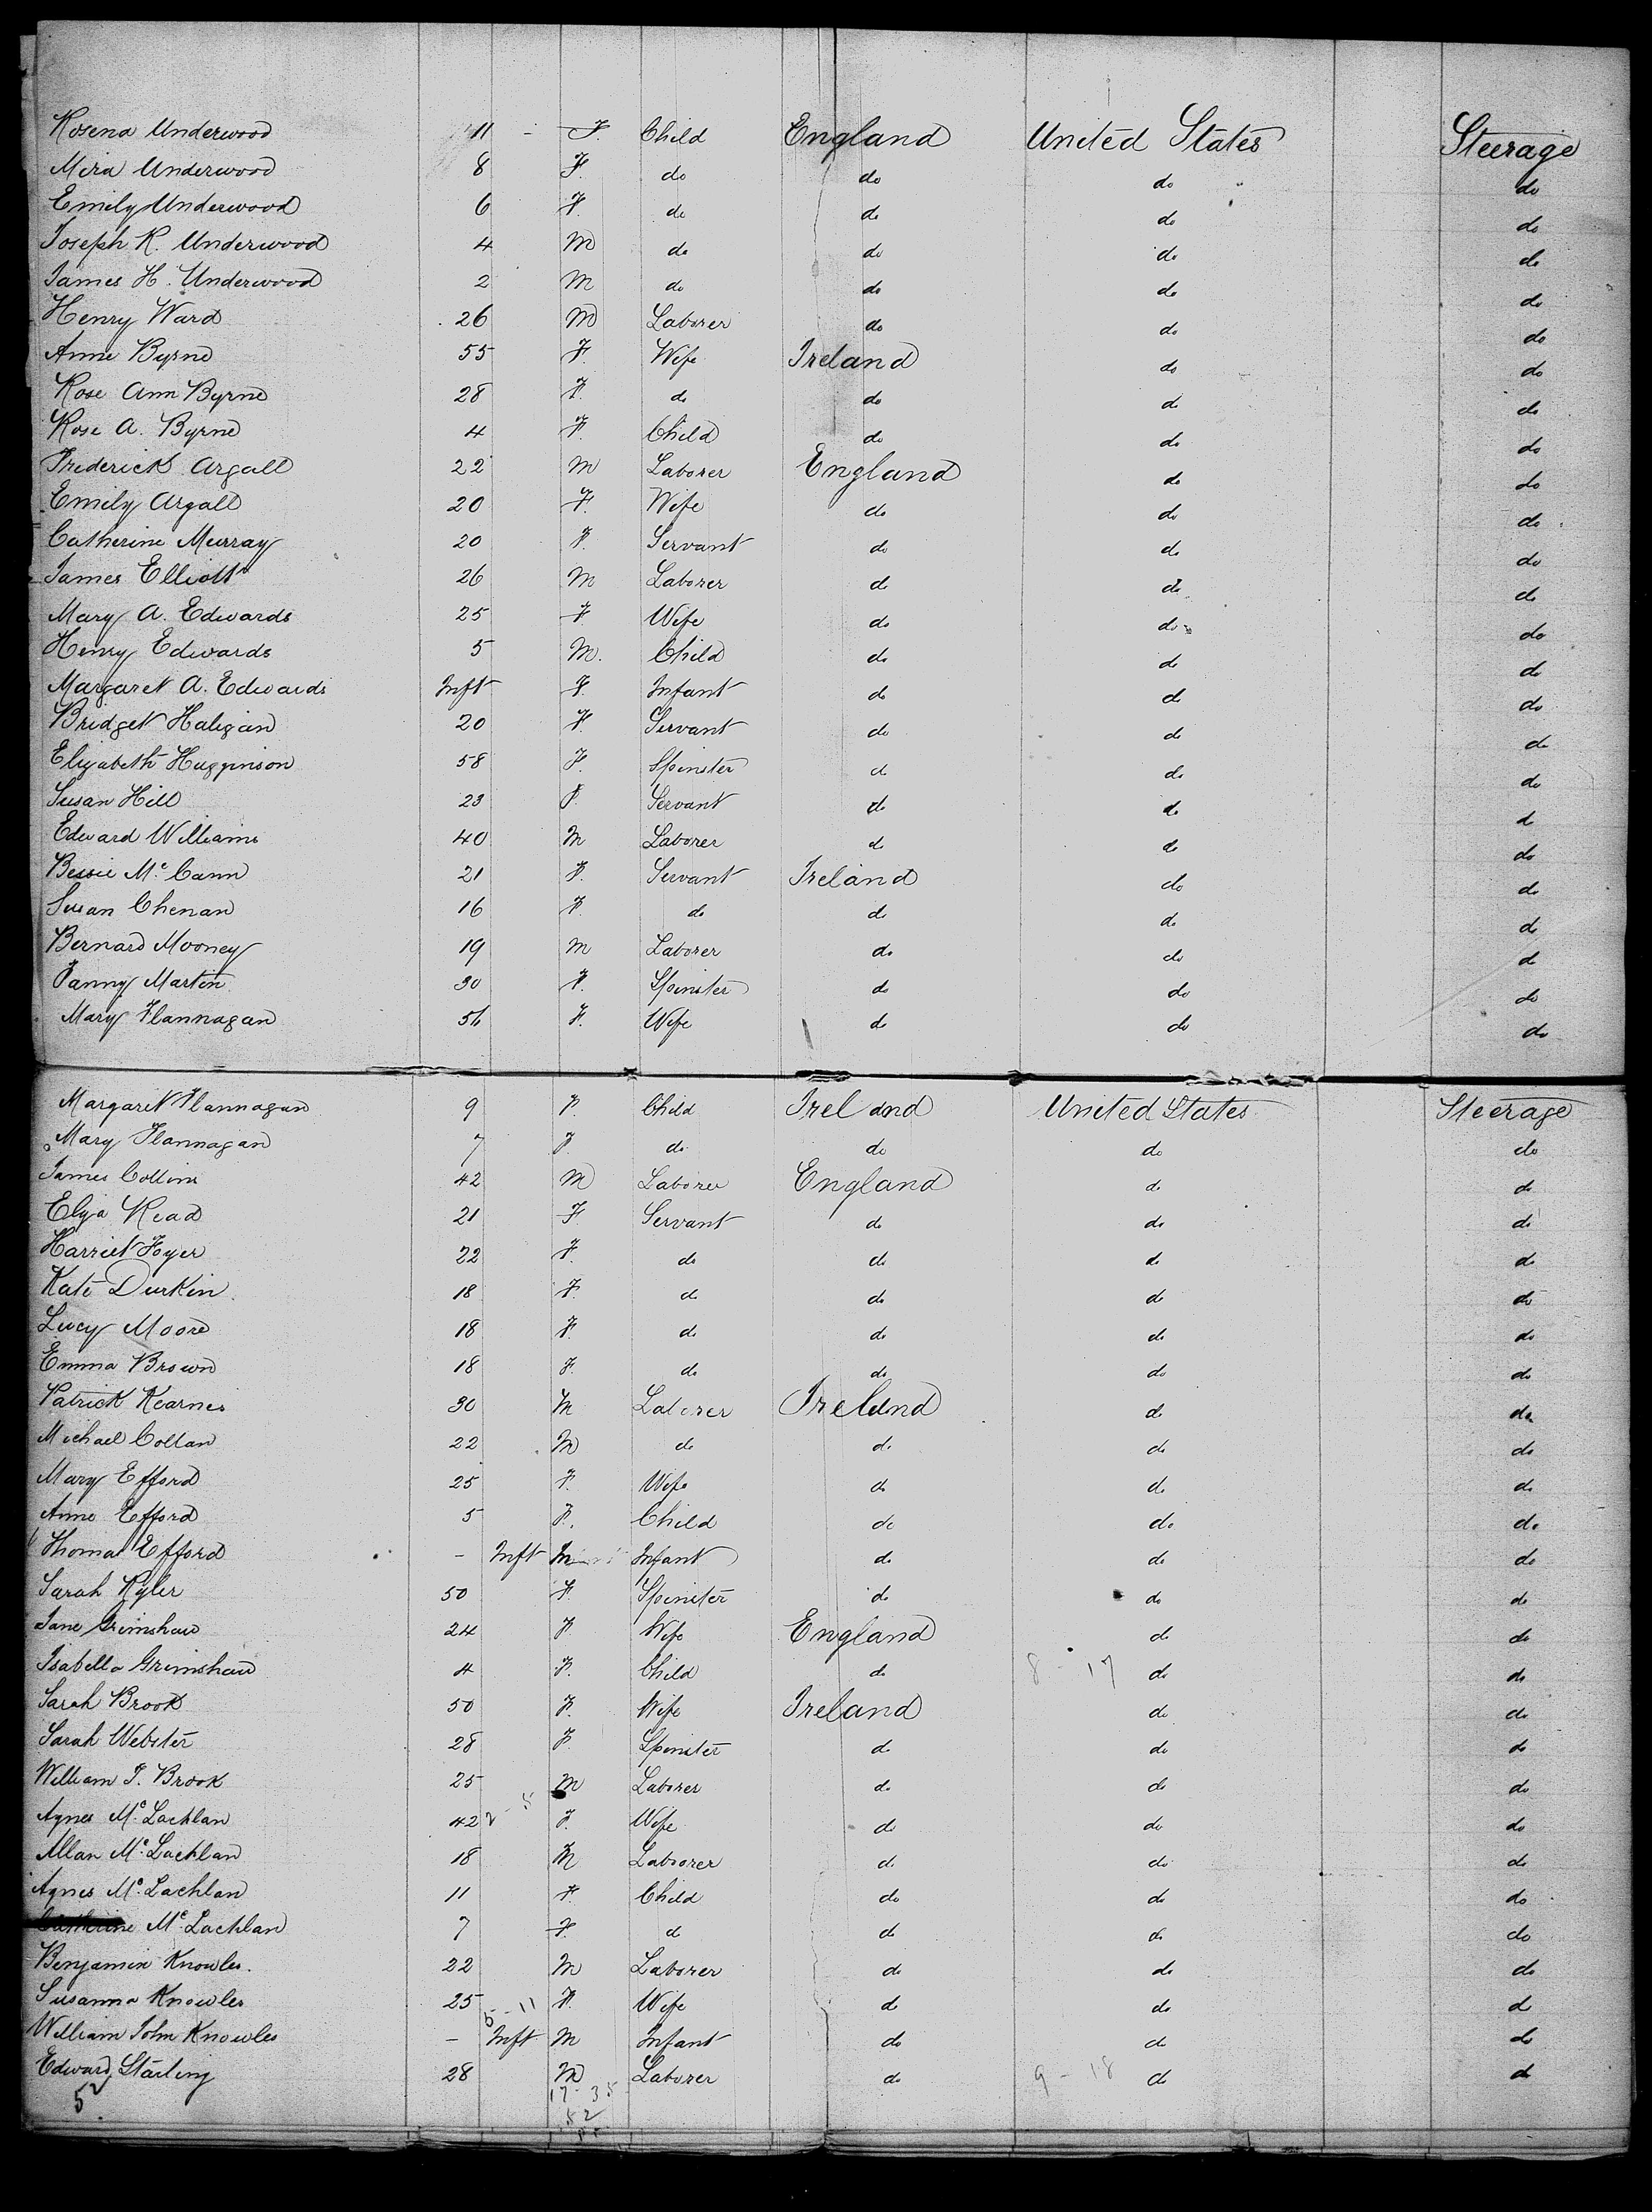 Rosena Underwood 11 - F. Child England United States Steerage
Mira Underwood 8 F. do do do do
Emily Underwood 6 F. do do do do
Joseph R. Underwood 4 M do do do do
James H. Underwood 2 M do do do do
Henry Ward 26 M Laborer do do do
Anne Byrne 55 F. Wife Ireland do do
Rose Ann Byrne 28 F. do do do do
Rose A. Byrne 4 F. Child do do do
Frederick Argall 22 M Laborer England do do
Emily Argall 20 F. Wife do do do
Catherine Murray 20 F. Servant do do do
James Elliott 26 M Laborer do do do
Mary A. Edwards 25 F Wife do do do
Henry Edwards 5 M. Child do do do
Margaret A. Edwards Inft F. Infant do do do
Bridget Haligan 20 F. Servant do do do
Elizabeth Hugginson 58 F. Spinster do do do
Susan Hill 23 F. Servant do do do
Edward Williams 40 M Laborer do do do
Bessie Mc Cann 21 F. Servant Ireland do do
Susan Chenan 16 F. do do do do
Bernard Mooney 19 M Laborer do do do
Fanny Martin 30 F. Spinster do do do
Mary Flannagan 56 F. Wife do do do
Margaret Flannagan 9 F. Child Ireland United States Steerage
Mary Flannagan 7 F. do do do do
James Collins 42 M Laborer England do do
Eliza Read 21 F Servant do do do
Harriet Foyer 22 F. do do do do
Kate Durkin 18 F. do do do do
Lucy Moore 18 F. do do do do
Emma Brown 18 F. do do do do
Patrick Kearnes 30 M Laborer Ireland do do
Michael Collan 22 M do do do do
Mary Efford 25 F. Wife do do do
Anne Efford 5 F. Child do do do
Thomas Efford - Inft M Infant do do do
Sarah Kyler 50 F. Spinster do do do
Jane Grimshaw 24 F Wife England do do
Isabella Grimshaw 4 F. Child do 8 - 17 do do
Sarah Brook 50 F. Wife Ireland do do
Sarah Webster 28 F. Spinster do do do
William J. Brook 25 M Laborer do do do
Agnes Mc Lachlan 42 2 - 5 F. Wife do do do
Allan Mc Lachlan 18 M Laborer do do do
Agnes Mc Lachlan 11 F. Child do do do
Catherine Mc Lachlan 7 F. do do do do
Benjamin Knowles. 22 M Laborer do do do
Susanna Knowles 25 F. Wife do do do
William John Knowles - 5 - 11 Inft M Infant do do do
Edward Starling 28 M Laborer do 9 - 18 do do
52 17 - 35
52